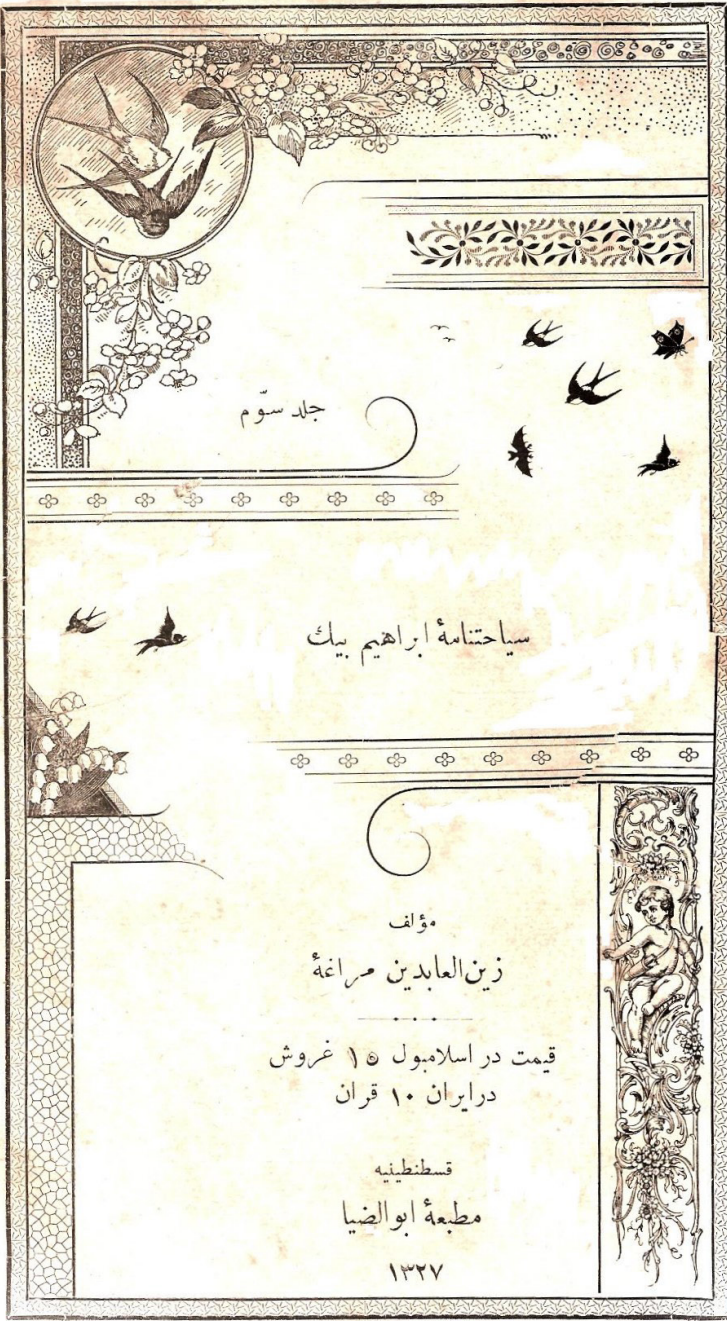 جلد سوّم
سیاحتنامهٔ ابراهیم بیك
مؤلف
زین‌العابدین مراغهٔ
قیمت در اسلامبول ۱۵ غروش
درایران ۱۰ قران
قسطنطینیه
مطبعهٔ ابوالضیا
۱۳۲۷